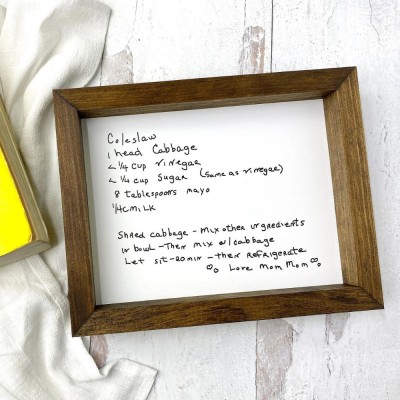 Coleslaw
1 head Cabbage
< 1/4 cup vinegar
< 1/4 cup sugar (same as vinegar)
8 tablespoons mayo
1/4 c milk
Shred cabbage - Mix other ingredients
in bowl - Then mix w/ cabbage
Let sit - 20 min - then refrigerate
Love Mom Mom